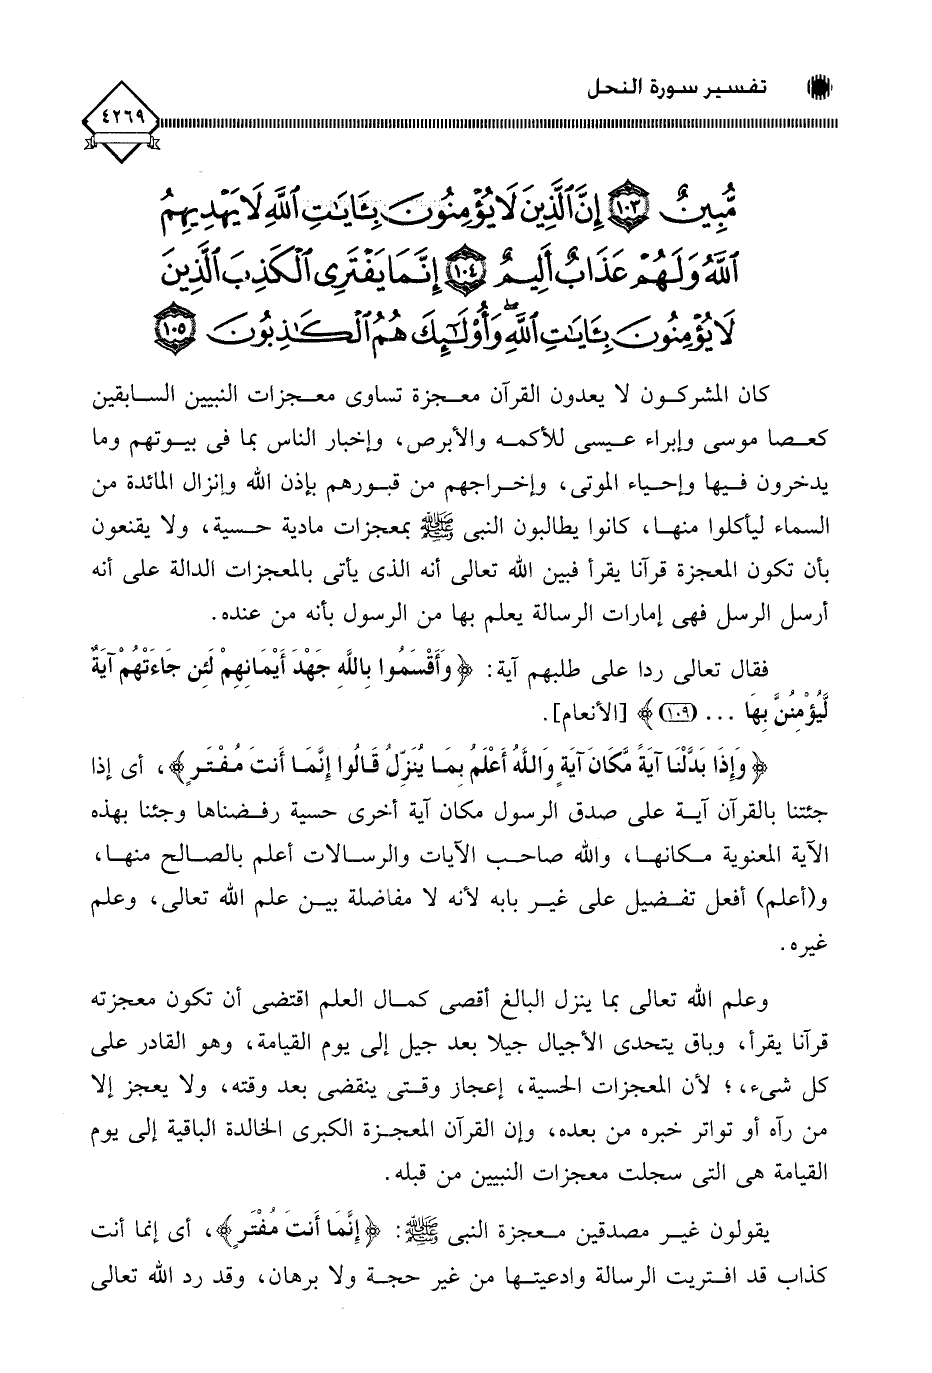 تفسير سورة النحل
٤٢٦٩
مُّبِينٌ ١٠٣ إِنَّ ٱلَّذِينَ لَا يُؤْمِنُونَ بِـَٔايَٰتِ ٱللَّهِ لَا يَهْدِيهِمُ
ٱللَّهُ وَلَهُمْ عَذَابٌ أَلِيمٌ ١٠٤ إِنَّمَا يَفْتَرِى ٱلْكَذِبَ ٱلَّذِينَ
لَا يُؤْمِنُونَ بِـَٔايَٰتِ ٱللَّهِ ۖ وَأُو۟لَٰٓئِكَ هُمُ ٱلْكَٰذِبُونَ ١٠٥
كان المشركون لا يعدون القرآن معجزة تساوى معجزات النبيين السابقين
كعصا موسى وإبراء عيسى للأكمه والأبرص، وإخبار الناس بما فى بيوتهم وما
يدخرون فيها وإحياء الموتى، وإخراجهم من قبورهم بإذن الله وإنزال المائدة من
السماء ليأكلوا منها، كانوا يطالبون النبى ﷺ بمعجزات مادية حسية، ولا يقنعون
بأن تكون المعجزة قرآنا يقرأ فبين الله تعالى أنه الذى يأتى بالمعجزات الدالة على أنه
أرسل الرسل فهى إمارات الرسالة يعلم بها من الرسول بأنه من عنده.
فقال تعالى ردا على طلبهم آية: ﴿وَأَقْسَمُوا بِاللَّهِ جَهْدَ أَيْمَانِهِمْ لَئِن جَاءَتْهُمْ آيَةٌ
لَّيُؤْمِنُنَّ بِهَا ... (١٠٩)﴾ [الأنعام].
﴿وَإِذَا بَدَّلْنَا آيَةً مَّكَانَ آيَةٍ وَاللَّهُ أَعْلَمُ بِمَا يُنَزِّلُ قَالُوا إِنَّمَا أَنتَ مُفْتَرٍ﴾، أى إذا
جئتنا بالقرآن آية على صدق الرسول مكان آية أخرى حسية رفضناها وجئنا بهذه
الآية المعنوية مكانها، والله صاحب الآيات والرسالات أعلم بالصالح منها،
و(أعلم) أفعل تفضيل على غير بابه لأنه لا مفاضلة بين علم الله تعالى، وعلم
غيره.
وعلم الله تعالى بما ينزل البالغ أقصى كمال العلم اقتضى أن تكون معجزته
قرآنا يقرأ، وباق يتحدى الأجيال جيلا بعد جيل إلى يوم القيامة، وهو القادر على
كل شىء،؛ لأن المعجزات الحسية، إعجاز وقتى ينقضى بعد وقته، ولا يعجز إلا
من رآه أو تواتر خبره من بعده، وإن القرآن المعجزة الكبرى الخالدة الباقية إلى يوم
القيامة هى التى سجلت معجزات النبيين من قبله.
يقولون غير مصدقين معجزة النبى ﷺ: ﴿إِنَّمَا أَنتَ مُفْتَرٍ﴾، أى إنما أنت
كذاب قد افتريت الرسالة وادعيتها من غير حجة ولا برهان، وقد رد الله تعالى